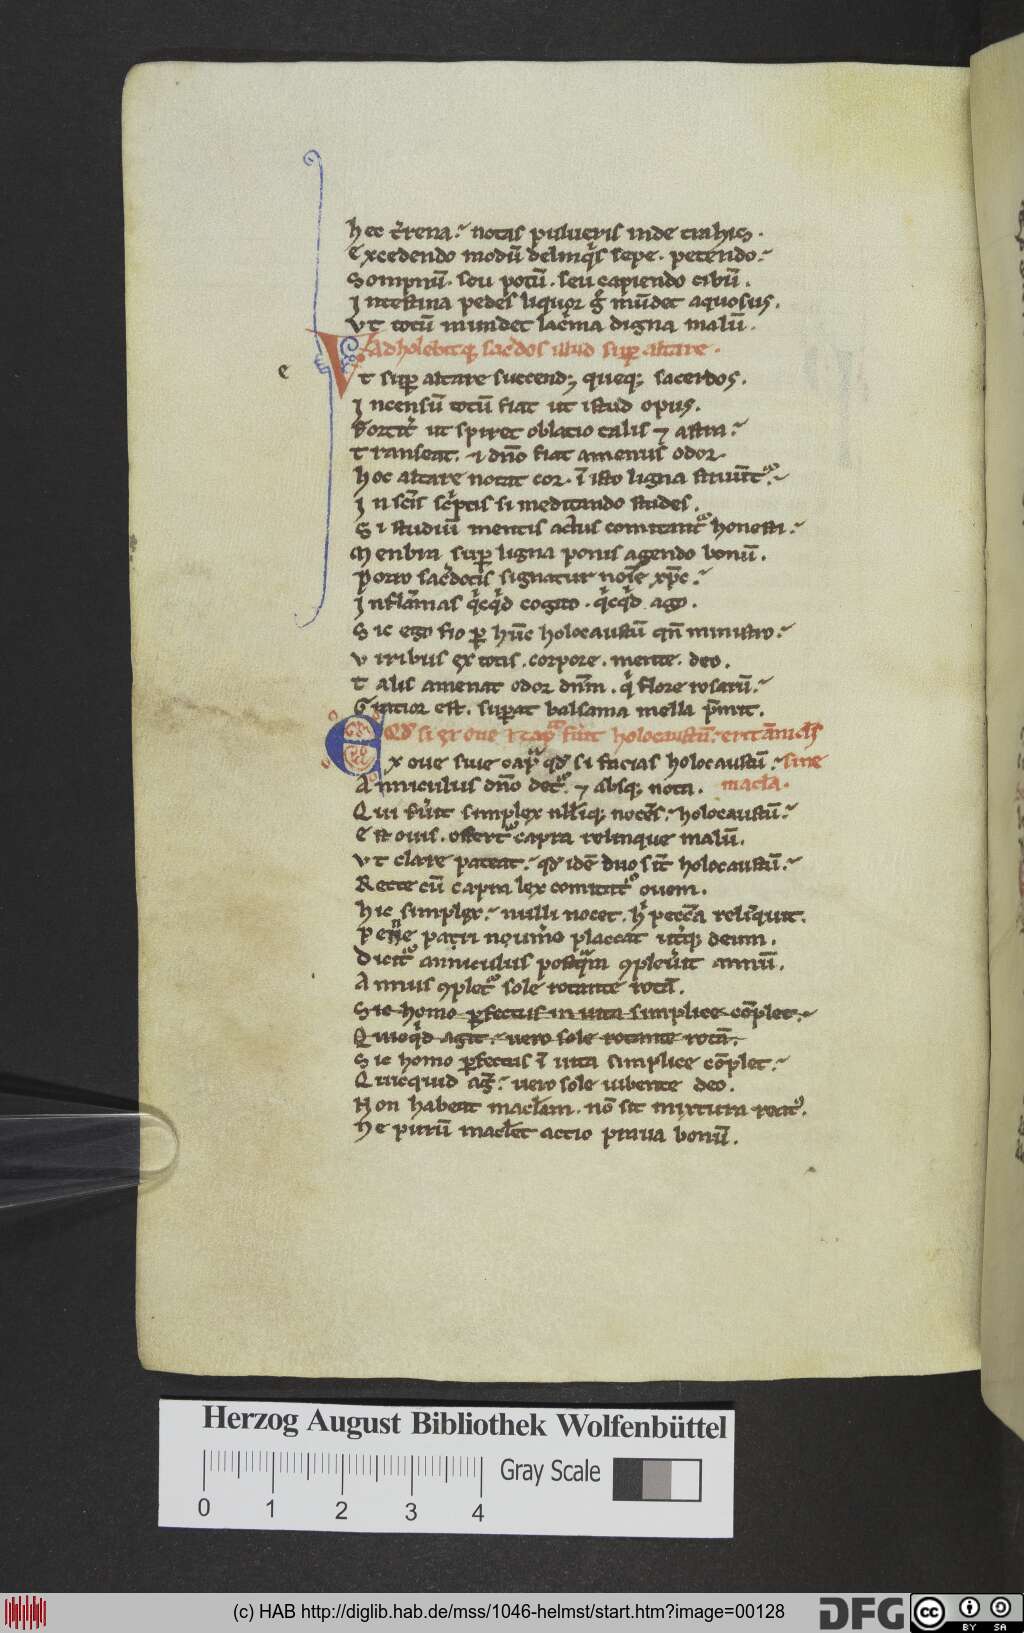 hec t̉rena. notas pulueris inde trahis.
Excedendo modū delinq̉s sepe. petendo.
Sompnū. seu potū. seu capiendo cibū.
Intestina pedes liquor g̊ mūdet aquosus.
Vt totū mundet lac̉ma digna malū.
Adholebitq; sac̉dos illud suꝑ altare.
e
Vt suꝑ altare succend; queq; sacerdos.
Incensū totū fiat ut istud opus.
ut spiret oblatio talis ⁊ astra
Transeat. ⁊ dn̄o fiat amenus odor.
hoc altare notat cor. ī isto ligna struūt᷑.
In sc̄is sc̉ptis si meditando studes.
Si studiū mentis act̉us comitant᷑ honesti.
Menbra suꝑ ligna ponis agendo bonū.
Porro sac̉dotis signatur noīe xp̄c.
Inflāmas q̉cq̉d cogito. q̉cq̉d ago.
Sic ego fio ꝑ hūc holocaustū qn̄ ministro.
Viribus ex totis. corpore. mente. deo.
Talis amenat odor dn̄m. q̉ flore rosarū.
Gratior est. suꝑat balsama mella p̄mit.
Qd̓ si ex oue ł cap̃ fūit holocaustū. erit āniclꝰ
Ex oue siue cap̃ qd̓ si facias holocaustū. sine
Anniculus dn̄o det᷑. ⁊ absq; nota. macl̓a.
Qui fūit simplex nł̄iq; nocēs. holocaustū.
Est ouis. offert᷑ capra relinque malū.
Vt clare pateat. qd̓ idē duo sīt holocaustū.
Recte cū capra lex comitat᷑ ouem.
hic simplex. nulli nocet. h̉ pecc̄a relīquit.
Pene patri noūmo placeat ut̉q; deum.
Dicit᷑ anniculus postq̃m ꝯpleūit annū.
Annus ꝯplet᷑ sole rotante rotā.
Sic homo ꝑfectus in uita simplice cōplet.
Quicq̉d agit. uero sole rotante rotā.
Sic homo ꝑfectus ī uita simplice cōplet.
Quicquid ag̉. uero sole iubente deo.
Non habeat macl̓am. nō sit mixtura reat᷑.
Ne purū macl̓et actio praua bonū.
Herzog August Bibliothek Wolfenbüttel
Gray Scale
0 1 2 3 4
(c) HAB http://diglib.hab.de/mss/1046-helmst/start.htm?image=00128
DFG
cc BY SA